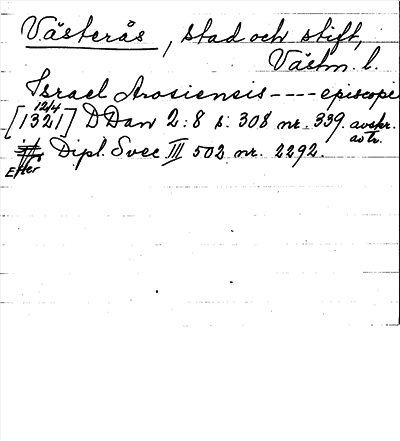 Västerås, stad och stift,
Västm. l.
Israel Arosiensis ---- episcopi
12/4
[1321] DDan 2:8 s. 308 nr. 339. avskr.
av tr.
Efter Dipl. Svec. III 502 nr. 2292.